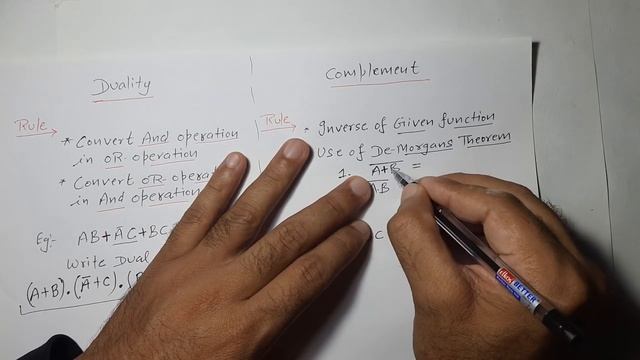 Duality
Rule
* Convert And operation
in OR operation
* Convert OR operation
in And operation
Eg:- AB + A̅C + BC
Write Dual
(A+B)·(A̅+C)·(B
Complement
Rule
* Inverse of Given function
Use of De-Morgans Theorem
1. A̅+̅B̅ =
A.B
C
cello BETTER